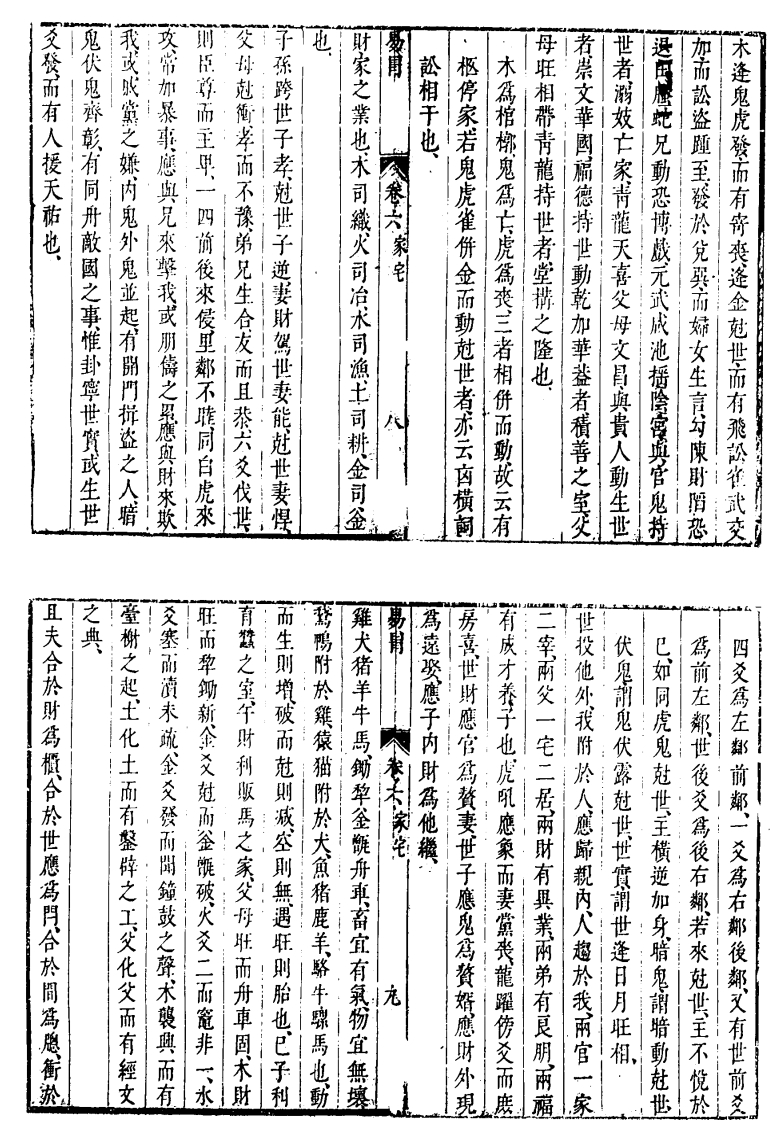 木逢鬼虎發而有寄喪、逢金尅世、而有飛訟、雀武交
加而訟盜踵至、發於兌巽、而婦女生言、勾陳財陷、恐
田、螣蛇兄動、恐博戲、元武咸池搖陰宮、與官鬼持
世者、溺妓亡家、靑龍天喜父母文昌與貴人動生世
者、崇文華國、福德持世動乾加華葢者、積善之室、父
母旺相帶靑龍持世者、堂搆之隆也、
木爲棺槨、鬼爲亡、虎爲喪、三者相併而動、故云有
柩停家、若鬼虎雀併金而動尅世者、亦云凶橫詞
訟相干也、
易冐 卷六 家宅 八
財家之業也、木司織、火司冶、水司漁、土司耕、金司釡
也、
子孫跨世子孝、尅世子逆、妻財駕世妻能、尅世妻悍、
父母尅衝孝而不豫、弟兄生合友而且恭、六爻伐世、
則臣尊而主卑、一四前後來侵、里鄰不睦、同白虎來
攻、常加暴事、應與兄來擊我、或朋儔之累、應與財來欺
我、或戚黨之嫌、內鬼外鬼並起、有開門揖盜之人、暗
鬼伏鬼齊彰、有同舟敵國之事、惟卦寧世實、或生世
爻發、而有人援天祐也、
四爻爲左鄰前鄰、一爻爲右鄰後鄰、又有世前爻
爲前左鄰、世後爻爲後右鄰、若來尅世、主不悅於
已、如同虎鬼尅世、主橫逆加身、暗鬼謂暗動尅世、
伏鬼謂鬼伏露尅世、世實謂世逢日月旺相、
世投他外、我附於人、應歸親內、人趨於我、兩官一家
二宰、兩父一宅二居、兩財有異業、兩弟有良朋、兩福
有成才養子也、虎吼應象而妻黨喪、龍躍傍爻而庶
房喜、世財應官爲贅妻、世子應鬼爲贅婿、應財外現
爲遠娶、應子內財爲他繼、
易冐 卷六 家宅 九
雞犬猪羊牛馬、鋤犂釡甑舟車、畜宜有氣、物宜無壞、
鵞鴨附於雞、猿猫附於犬、魚猪鹿羊、駱牛騾馬也、動
而生則增、破而尅則減、空則無、遇旺則胎也、巳子利
育蠶之室、午財利販馬之家、父母旺而舟車固、木財
旺而犂鋤新、金爻尅而釡甑破、火爻二而竈非一、水
爻塞而瀆未疏、金爻發而聞鐘鼓之聲、木襲興而有
臺榭之起、土化土而有鑿辟之工、父化父而有經文
之典、
且夫合於財爲櫃、合於世應爲門、合於間爲廳、衝於